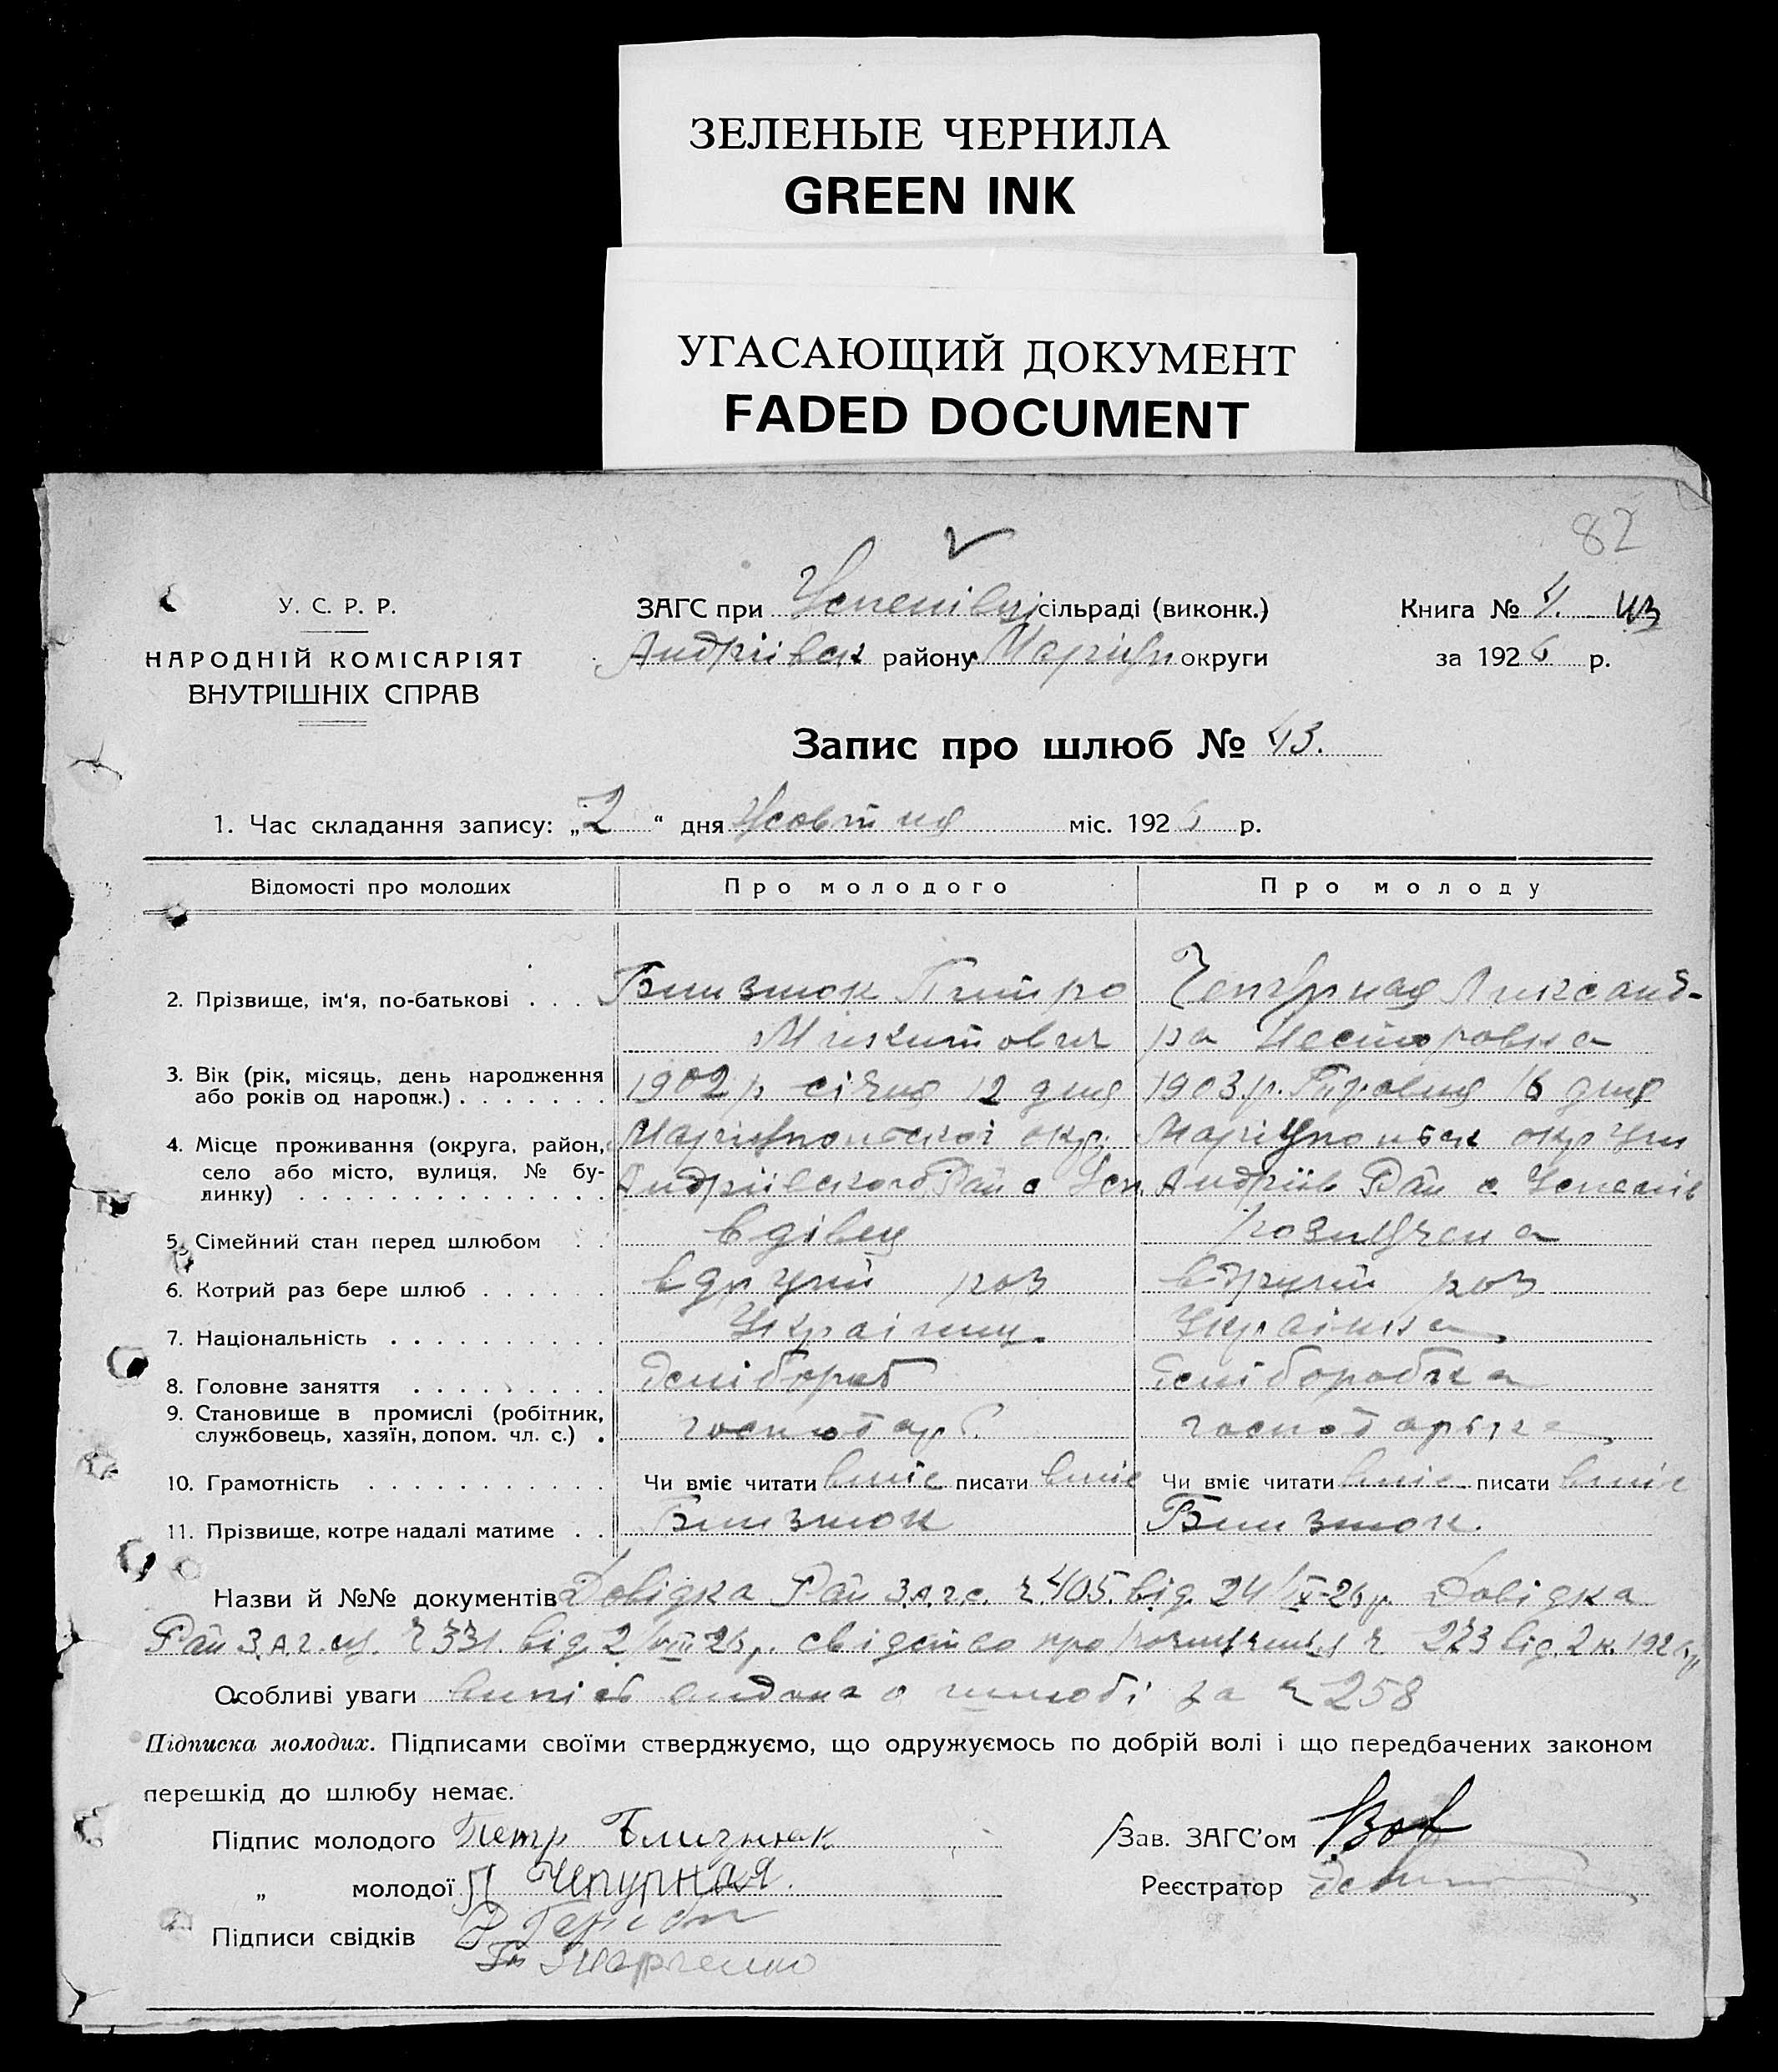 ЗЕЛЕНЫЕ ЧЕРНИЛА
GREEN INK
УГАСАЮЩИЙ ДОКУМЕНТ
FADED DOCUMENT
82
У. С. Р. Р.
НАРОДНІЙ КОМІСАРІЯТ
ВНУТРІШНІХ СПРАВ
ЗАГС при Успенівці сільраді (виконк.)
Андріівск району Маріуп округи
Книга № 4. 43
за 1926 р.
Запис про шлюб № 43.
1. Час складання запису: „2“ дня Жовтня міс. 1926 р.
Відомості про молодих Про молодого Про молоду
2. Прізвище, ім‘я, по-батькові . . . Близнюк Питро Чепурная Лександ-
Микитович ра Несторовна
3. Вік (рік, місяць, день народження
або років од народж.) . . . . . . . 1902 р січня 12 дня 1903 р. Травня 16 дня
4. Місце проживання (округа, район, Маріупольскоі окр. Маріупольск округи
село або місто, вулиця, № бу-
динку) . . . . . . . . . . . . . . Андріівского Рай с Усп. Андріів Рай с Успенів
5. Сімейний стан перед шлюбом . . вдівец розлучена
6. Котрий раз бере шлюб . . . . . . вдругий раз вдругий раз
7. Національність . . . . . . . . . Украінец. Украінка
8. Головне заняття . . . . . . . . . хліброб хліборобка
9. Становище в промислі (робітник,
службовець, хазяїн, допом. чл. с.) . господарь. господарька
10. Грамотність . . . . . . . . . . . Чи вміє читати вміє писати вміє Чи вміє читати вміє писати вміє
11. Прізвище, котре надалі матиме . . Близнюк Близнюк.
Назви й №№ документів Довідка Рай З.А.г.с. ч. 405. від 24/IX-26 р. Довідка
Рай З.А.г.с. ч 331. від 2/VIII 26 р. свідотво про розлучення ч 273 від. 192
Особливі уваги випісь видана о шлюбі за ч 258
Підписка молодих. Підписами своїми стверджуємо, що одружуємось по добрій волі і що передбачених законом
перешкід до шлюбу немає.
Підпис молодого Петр Близнюк
„ молодої Л Чепурная.
Підписи свідків
Зав. ЗАГС’ом
Реєстратор